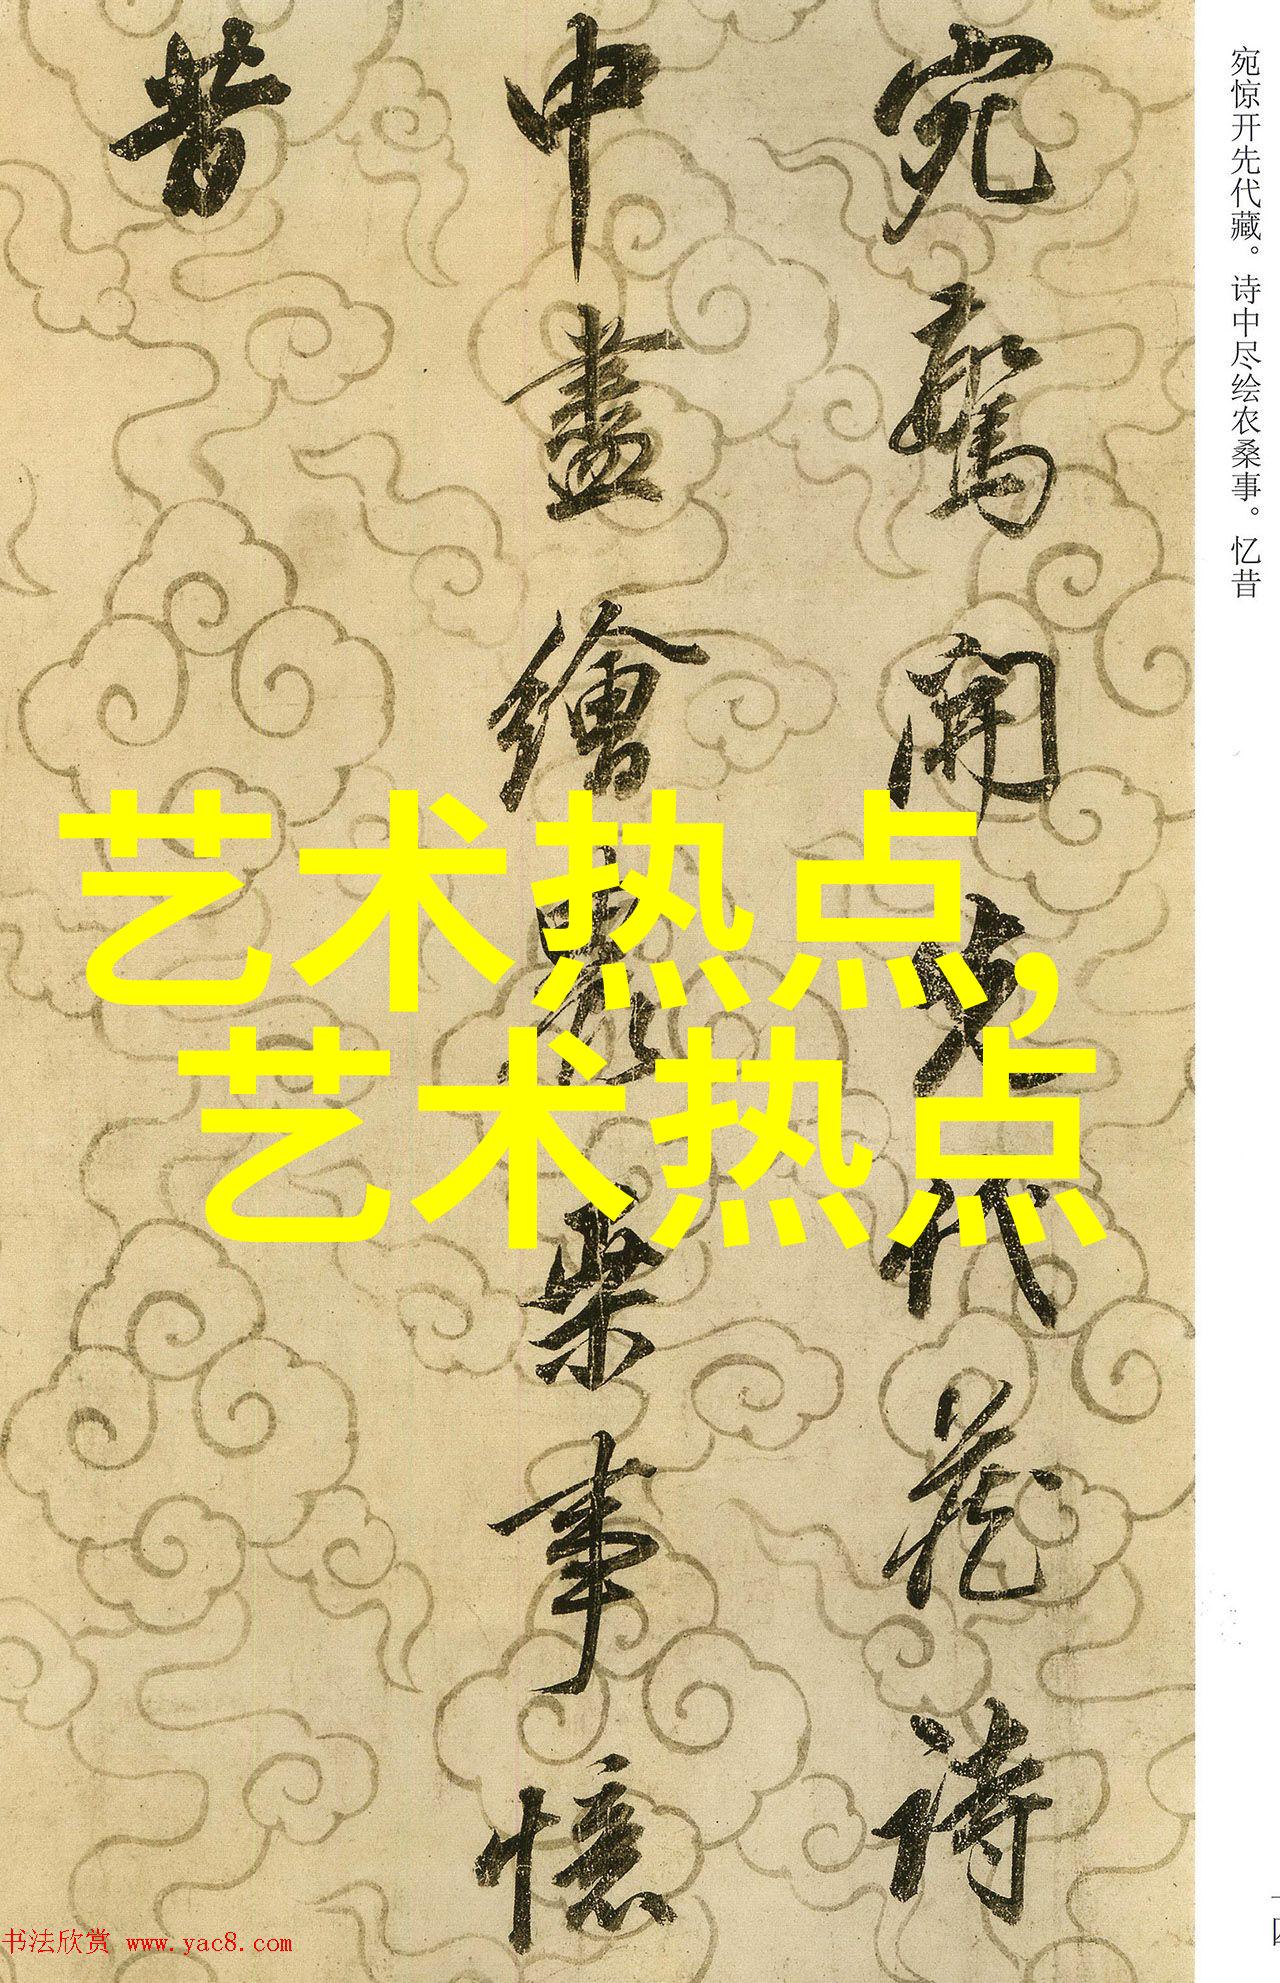 宛驚開先代藏詩
中盡繪農桒事憶
昔
宛惊开先代藏。诗中尽绘农桑事。忆昔
艺术热点,
艺术热点
书法欣赏 www.yac8.com